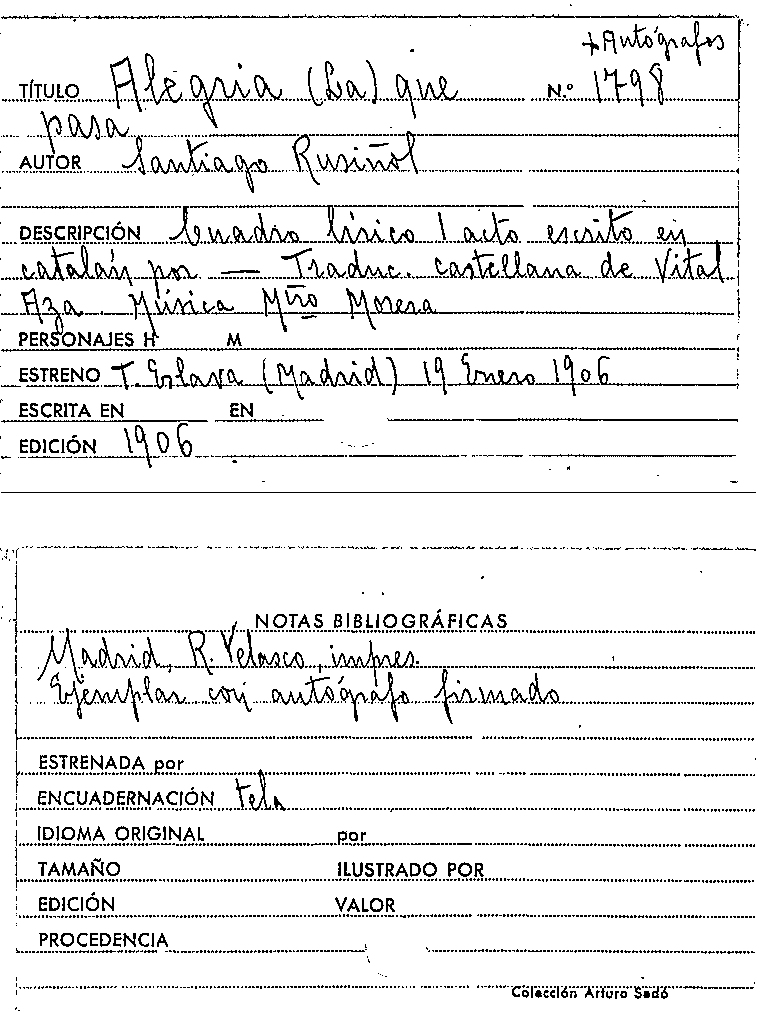 + Autógrafos
TÍTULO Alegria (La) que N.º 1798
pasa
AUTOR Santiago Rusiñol
DESCRIPCIÓN Cuadro lírico 1 acto escrito en
catalán por — Traduc. castellana de Vital
Aza. Música Mtro Morera
PERSONAJES H M
ESTRENO T. Eslava (Madrid) 19 Enero 1906
ESCRITA EN EN
EDICIÓN 1906
NOTAS BIBLIOGRÁFICAS
Madrid, R. Velasco, impres.
Ejemplar con autógrafo firmado
ESTRENADA por
ENCUADERNACIÓN tela
IDIOMA ORIGINAL por
TAMAÑO ILUSTRADO POR
EDICIÓN VALOR
PROCEDENCIA
Colección Arturo Sedó